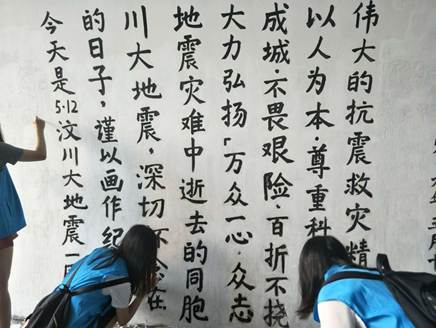 今天是5·12汶川大地震一
的日子，谨以画作纪
川大地震，深切怀念在
地震灾难中逝去的同胞
大力弘扬「万众一心·众志
成城·不畏艰险·百折不挠
以人为本·尊重科
伟大的抗震救灾精